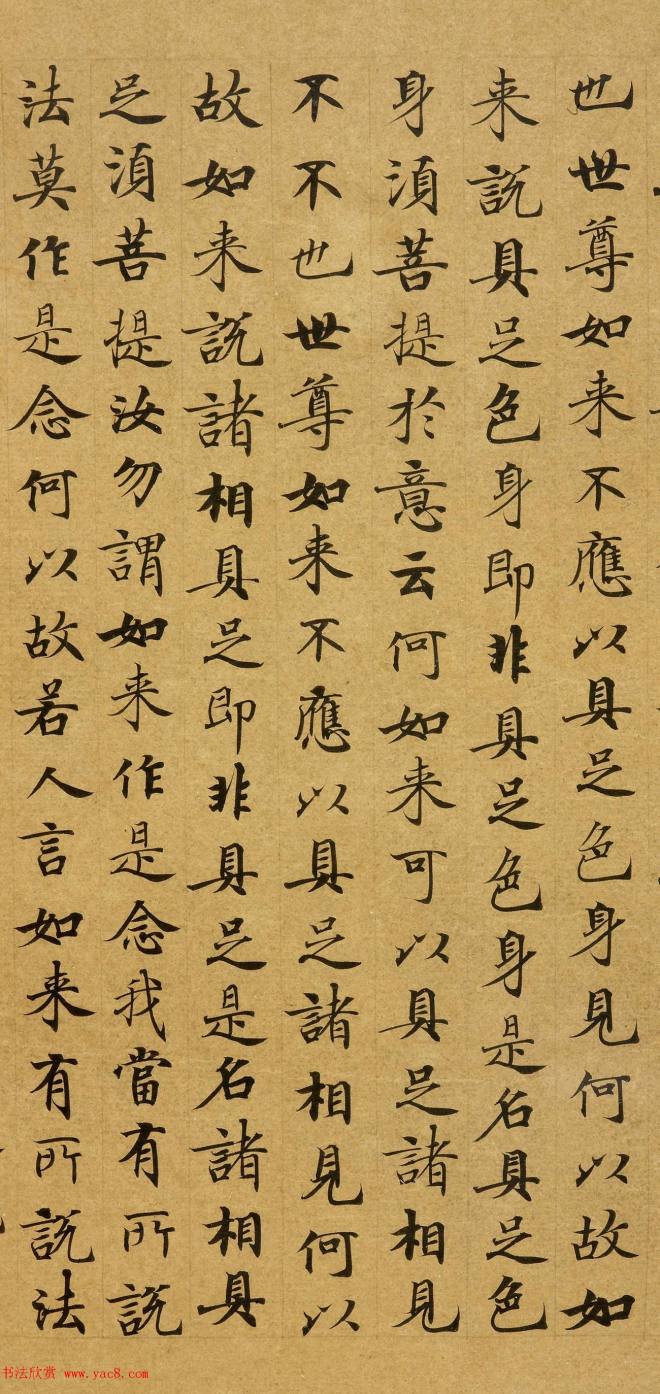 也世尊如来不應以具足色身見何以故如
来說具足色身即非具足色身是名具足色
身須菩提於意云何如来可以具足諸相見
不不也世尊如来不應以具足諸相見何以
故如来說諸相具足即非具足是名諸相具
足須菩提汝勿謂如来作是念我當有所說
法莫作是念何以故若人言如来有所說法
书法欣赏 www.yac8.com